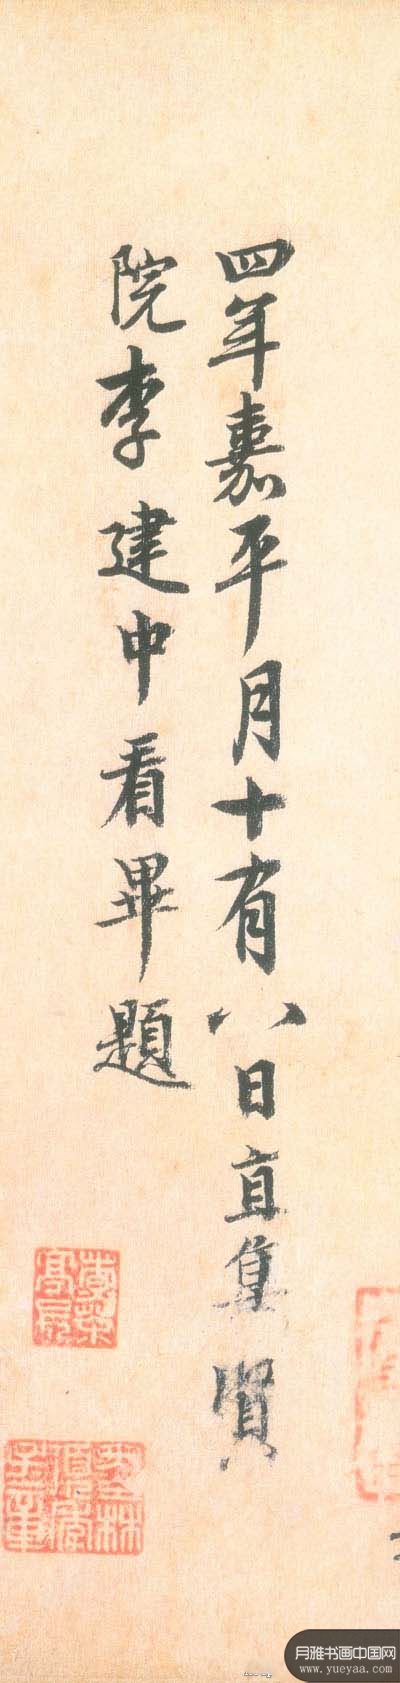 四年嘉平月十有八日直集賢
院李建中看畢題
月雅书画中国网
www.yueyaa.com